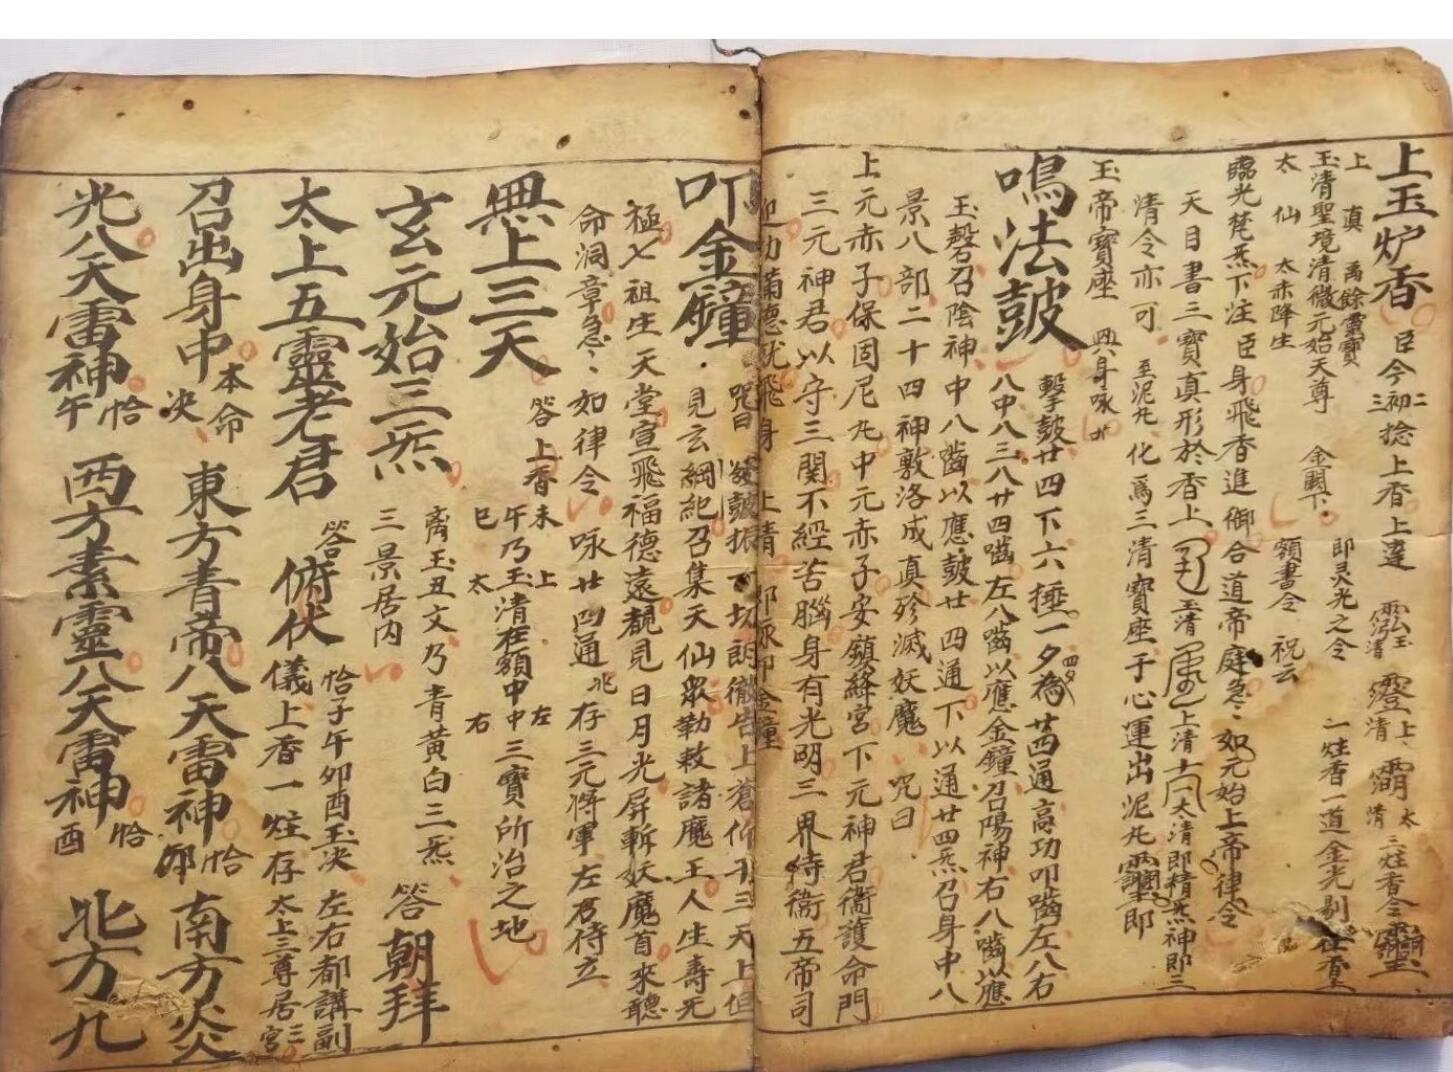 上玉炉香 臣今初捻上香上達
上真
玉清聖境清微元始天尊 金闕下 即灵光之令 一炷香一道金光
太仙 太赤降生 額書令 祝云
臨光梵炁下注臣身飛香進御合道帝庭急〻如元始上帝律令
天目書三寶真形於香上 玉清 上清 太清即精炁神即三
清令亦可 至泥丸化為三清寶座于心運出泥丸 即
玉帝寶座 四身咏
鳴法鼓 擊鼓廿四下六捶一夕為廿四通高功叩齒左八右
八中八三八廿四齒左八齒以應金鐘召陽神右八齒以應
玉磬召陰神中八齒以應鼓廿四通下以通廿四炁召身中八
景八部二十四神敷洛成真殄滅妖魔 咒曰
上元赤子保固尼丸中元赤子安鎮絳宮下元神君衛護命門
三元神君以守三関不經苦腦身有光明三界侍衛五帝司
迎功滿德就飛身上清 即咏叩金鐘
叩金鐘 咒曰 鼓振一切朗徹告上蒼 三天上但
見玄綱紀召集天仙衆勒敕諸魔王人生壽无
極七祖生天堂宣飛福德遠觀見日月光屏斬妖魔首來聽
命洞章急〻如律令 咏廿四通 存三元將軍左右侍立
無上三天 答上香 未午巳乃玉清在額中 上太 左中右三寶所治之地
玄元始三炁 齊玉丑文乃青黃白三炁 三景居内 答朝拜
太上五靈老君 答俯伏 恰子午卯酉玉决 左右都講副
儀上香一炷存太上三尊居三宮
召出身中 本命决 東方青帝八天雷神 恰卯 南方炎
光八天雷神 恰午 西方素靈八天雷神 恰酉 北方九